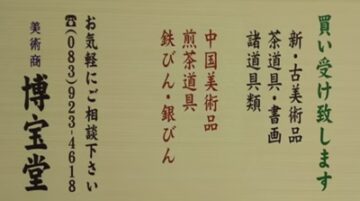 買い受け致します
新・古美術品
茶道具・書画
諸道具類
中国美術品
煎茶道具
鉄びん・銀びん
お気軽にご相談下さい
☎(083)923-4618
美術商 博宝堂